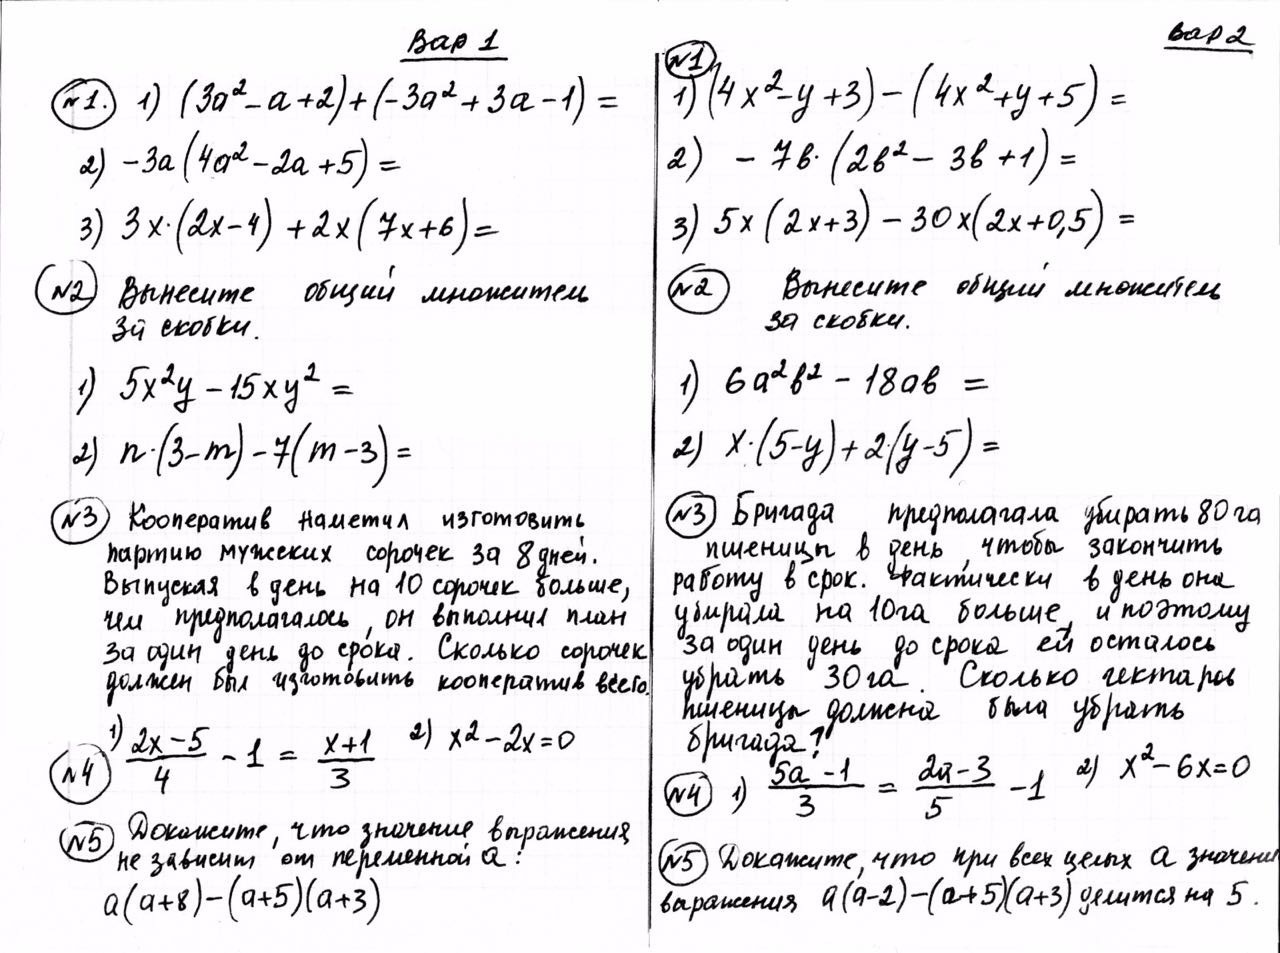 Вар 1
№1. 1) (3a² - a + 2) + (-3a² + 3a - 1) =
2) -3a (4a² - 2a + 5) =
3) 3x·(2x-4) + 2x (7x+6) =
№2 Вынесите общий множитель
за скобки.
1) 5x²y - 15xy² =
2) n·(3-m) - 7(m-3) =
№3 Кооператив наметил изготовить
партию мужских сорочек за 8 дней.
Выпуская в день на 10 сорочек больше,
чем предполагалось, он выполнил план
за один день до срока. Сколько сорочек
должен был изготовить кооператив всего.
№4 1) (2x-5)/4 - 1 = (x+1)/3 2) x² - 2x = 0
№5 Докажите, что значение выражения
не зависит от переменной a:
a(a+8) - (a+5)(a+3)
Вар 2
№1
1) (4x² - y + 3) - (4x² + y + 5) =
2) - 7b· (2b² - 3b + 1) =
3) 5x (2x+3) - 30x(2x+0,5) =
№2 Вынесите общий множитель
за скобки.
1) 6a²b² - 18ab =
2) x·(5-y) + 2·(y-5) =
№3 Бригада предполагала убирать 80 га
пшеницы в день, чтобы закончить
работу в срок. Фактически в день она
убирала на 10 га больше, и поэтому
за один день до срока ей осталось
убрать 30 га. Сколько гектаров
пшеницы должна была убрать
бригада?
№4 1) (5a-1)/3 = (2a-3)/5 - 1 2) x² - 6x = 0
№5 Докажите, что при всех целых a значение
выражения a(a-2) - (a+5)(a+3) делится на 5.